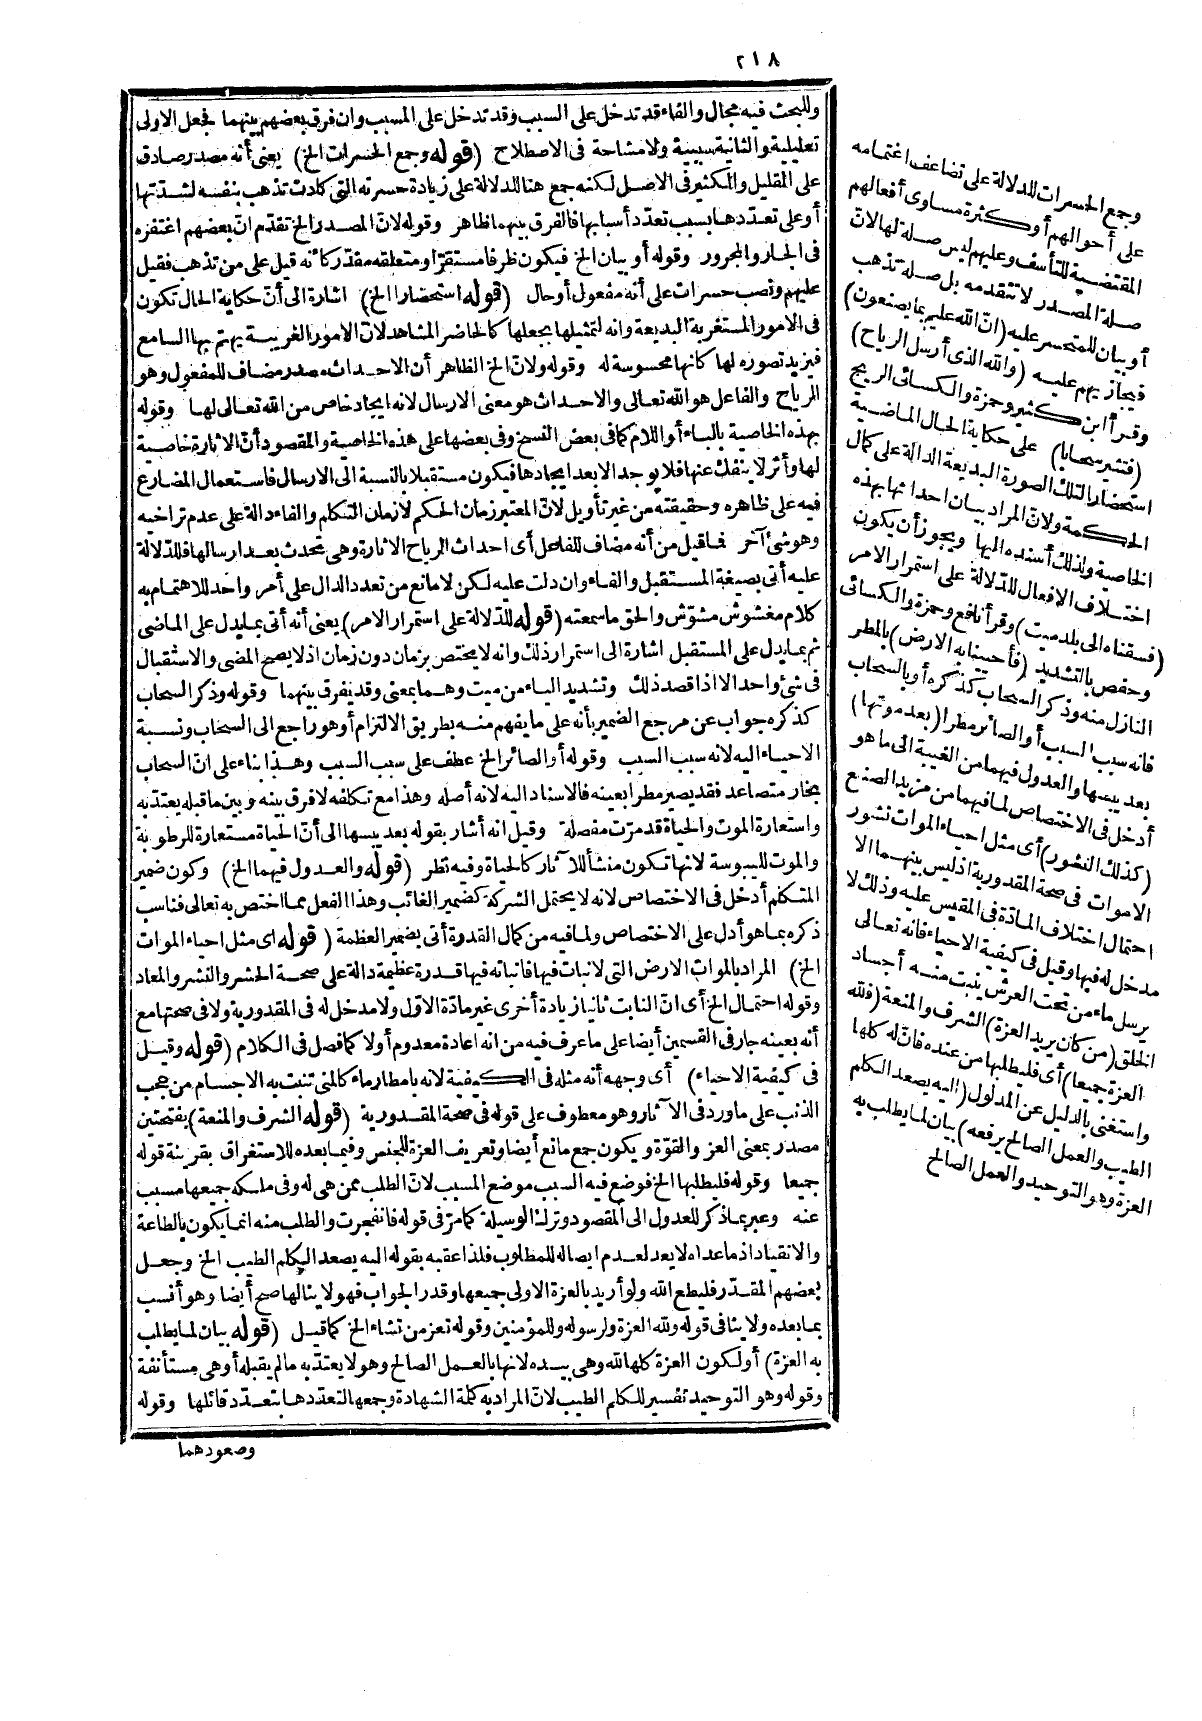 ٢١٨
وللبحث فيه مجال والفاء قد تدخل على السبب وقد تدخل على المسبب وان فرق بعضهم بينهما فجعل الاولى
تعليلية والثانية سببية ولا مشاحة فى الاصطلاح (قوله وجمع الحسرات الخ) يعنى أنه مصدر صادق
على القليل والكثير فى الاصل لكنه جمع هنا للدلالة على زيادة حسرته التى كادت تذهب بنفسه لشدّتها
أو على تعدّدها بسبب تعدّد أسبابها فالفرق بينهما ظاهر وقوله لانّ المصدر الخ تقدّم انّ بعضهم اغتفره
فى الجار والمجرور وقوله أو بيان الخ فيكون ظرفا مستقرّا ومتعلقه مقدّر كأنه قيل على من تذهب فقيل
عليهم ونصب حسرات على أنه مفعول أو حال (قوله استحضارا الخ) اشارة الى أنّ حكاية الحال تكون
فى الامور المستغربة البديعة وانه لتمثيلها يجعلها كالحاضر المشاهد لانّ الامور الغريبة يهتم بها السامع
فيزيد تصوره لها كأنها محسوسة له وقوله ولانّ الخ الظاهر أن الاحداث مصدر مضاف للمفعول وهو
الرياح والفاعل هو الله تعالى والاحداث هو معنى الارسال لانه ايجاد خاص من الله تعالى لها وقوله
بهذه الخاصية بالباء أو اللام كما فى بعض النسخ وفى بعضها على هذه الخاصية والمقصود أنّ الاثارة خاصية
لها وأثر لا ينفك عنها فلا يوجد الا بعد ايجادها فيكون مستقبلا بالنسبة الى الارسال فاستعمال المضارع
فيه على ظاهره وحقيقته من غير تأويل لانّ المعتبر زمان الحكم لا زمان التكلم والفاء دالة على عدم تراخيه
وهو شئ آخر فما قيل من أنه مضاف للفاعل أى احداث الرياح الاثارة وهى تحدث بعد ارسالها فللدلالة
عليه أتى بصيغة المستقبل والفاء وان دلت عليه لكن لا مانع من تعدد الدال على أمر واحد للاهتمام به
كلام مغشوش مشوّش والحق ما سمعته (قوله للدّلالة على استمرار الامر) يعنى أنه أتى بما يدل على الماضى
ثم بما يدل على المستقبل اشارة الى استمرار ذلك وانه لا يختص بزمان دون زمان اذ لا يصح المضى والاستقبال
فى شئ واحد الا اذا قصد ذلك وتشديد الياء من ميت وهما بمعنى وقد يفرق بينهما وقوله وذكر السحاب
كذكره جواب عن مرجع الضمير بأنه على ما يفهم منه بطريق الالتزام أو هو راجع الى السحاب ونسبة
الاحياء اليه لانه سبب السبب وقوله أو الصائر الخ عطف على سبب السبب وهذا بناء على انّ السحاب
بخار متصاعد فقد يصير مطرا بعينه فالاسناد اليه لانه أصله وهذا مع تكلفه لا فرق بينه وبين ما قبله يعتدّ به
واستعارة الموت والحياة قد مرّت مفصلة وقيل انه أشار بقوله بعد يبسها الى أنّ الحياة مستعارة للرطوبة
والموت لليبوسة لانها تكون منشأ للآثار كالحياة وفيه نظر (قوله والعدول فيهما الخ) وكون ضمير
المتكلم أدخل فى الاختصاص لانه لا يحتمل الشركة كضمير الغائب وهذا الفعل مما اختص به تعالى فناسب
ذكره بما هو أدل على الاختصاص ولما فيه من كمال القدرة أتى بضمير العظمة (قوله اى مثل احياء الموات
الخ) المراد بالموات الارض التى لا نبات فيها فانباته فيها قدرة عظيمة دالة على صحة الحشر والنشر والمعاد
وقوله احتمال الخ أى انّ النابت ثانيا زيادة أخرى غير مادّة الاوّل ولا مدخل له فى المقدورية ولا فى صحتها مع
أنه بعينه جار فى القسمين أيضا على ما عرف فيه من انه اعادة معدوم أولا كما فصل فى الكلام (قوله وقيل
فى كيفية الاحياء) أى وجهه أنه مثله فى الكيفية لانه بامطار ماء كالمنى تنبت به الاجسام من عجب
الذنب على ما ورد فى الآثار وهو معطوف على قوله فى صحة المقدورية (قوله الشرف والمنعة) بفتحتين
مصدر بمعنى العز والقوّة ويكون جمع مانع أيضا وتعريف العزة للجنس وفيما بعده للاستغراق بقرينة قوله
جميعا وقوله فليطلبها الخ فوضع فيه السبب موضع المسبب لانّ الطلب ممن هى له وفى ملكه جميعها مسبب
عنه وعبر بما ذكر للعدول الى المقصود وترك الوسيلة كما مرّ فى قوله فانفجرت والطلب منه انما يكون بالطاعة
والانقياد اذ ما عداه لا يعد لعدم ايصاله للمطلوب فلذا عقبه بقوله اليه يصعد الكلم الطيب الخ وجعل
بعضهم المقدّر فليطع الله ولو أريد بالعزة الاولى جميعها وقدر الجواب فهو لا ينالها صح أيضا وهو أنسب
بما بعده ولا ينافى قوله ولله العزة ولرسوله وللمؤمنين وقوله تعز من تشاء الخ كما قيل (قوله بيان لما يطلب
به العزة) أو لكون العزة كلها لله وهى بيده لانها بالعمل الصالح وهو لا يعتدّ به ما لم يقبله أو هى مستأنفة
وقوله وهو التوحيد تفسير للكلم الطيب لانّ المراد به كلمة الشهادة وجمعها لتعدّدها بتعدّد قائلها وقوله
وصعودهما
وجمع الحسرات للدلالة على تضاعف اغتمامه
على أحوالهم أو كثرة مساوى أفعالهم
المقتضية للتأسف وعليهم ليس صلة لها لانّ
صلة المصدر لا تتقدمه بل صلة تذهب
أو بيان للمتحسر عليه (انّ الله عليم بما يصنعون)
فيجازيهم عليه (والله الذى أرسل الرياح)
وقرأ ابن كثير وحمزة والكسائى الريح
(فتثير سحابا) على حكاية الحال الماضية
استحضارا لتلك الصورة البديعة الدالة على كمال
الحكمة ولانّ المراد بيان احداثها بهذه
الخاصية ولذلك أسنده اليها ويجوز أن يكون
اختلاف الافعال للدّلالة على استمرار الامر
(فسقناه الى بلد ميت) وقرأ نافع وحمزة والكسائى
وحفص بالتشديد (فأحيينا به الارض) بالمطر
النازل منه وذكر السحاب كذكره أو بالسحاب
فانه سبب السبب أو الصائر مطرا (بعد موتها)
بعد يبسها والعدول فيهما من الغيبة الى ما هو
أدخل فى الاختصاص لما فيهما من مزيد الصنع
(كذلك النشور) أى مثل احياء الموات نشور
الاموات فى صحة المقدورية اذ ليس بينهما الا
احتمال اختلاف المادّة فى المقيس عليه وذلك لا
مدخل له فيها وقيل فى كيفية الاحياء فانه تعالى
يرسل ماء من تحت العرش ينبت منه أجساد
الخلق (من كان يريد العزة) الشرف والمنعة (فلله
العزة جميعا) أى فليطلبها من عنده فانّ له كلها
واستغنى بالدليل عن المدلول (اليه يصعد الكلم
الطيب والعمل الصالح يرفعه) بيان لما يطلب به
العزة وهو التوحيد والعمل الصالح